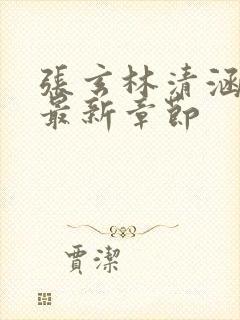 張玄林清涵
最新章節
賈潔